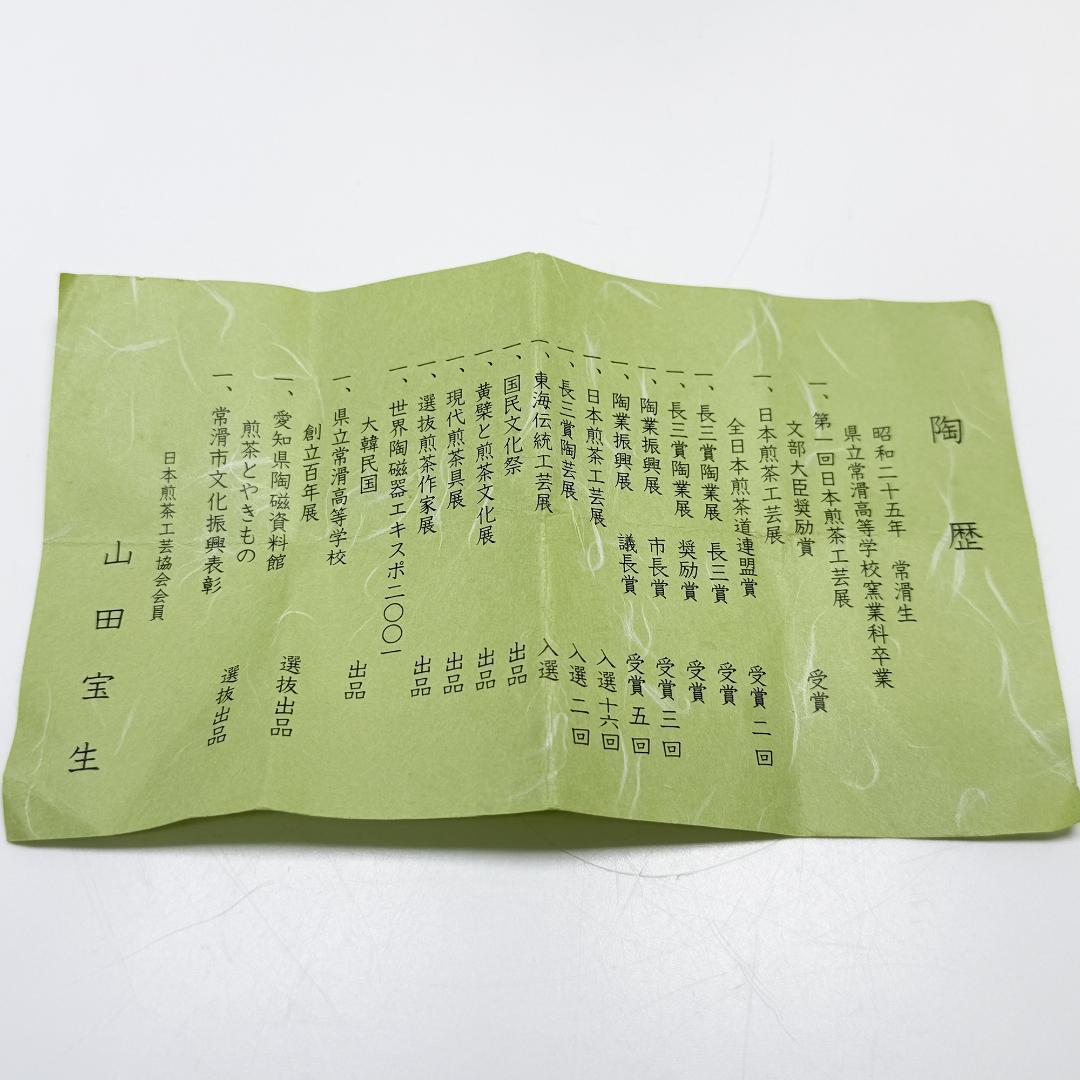 陶歴
昭和二十五年 常滑生
県立常滑高等学校窯業科卒業
一、第一回日本煎茶工芸展
文部大臣奨励賞 受賞
一、日本煎茶工芸展
全日本煎茶道連盟賞 受賞 二回
一、長三賞陶業展 長三賞 受賞
一、長三賞陶業展 奨励賞 受賞
一、陶業振興展 市長賞 受賞 三回
一、陶業振興展 議長賞 受賞 五回
一、日本煎茶工芸展 入選 十六回
一、長三賞陶芸展 入選 二回
一、東海伝統工芸展 入選
一、国民文化祭 出品
一、黄檗と煎茶文化展 出品
一、現代煎茶具展 出品
一、選抜煎茶作家展 出品
一、世界陶磁器エキスポ二〇〇一
大韓民国 出品
一、県立常滑高等学校
創立百年展
一、愛知県陶磁資料館 選抜出品
煎茶とやきもの
一、常滑市文化振興表彰 選抜出品
日本煎茶工芸協会会員
山田宝生